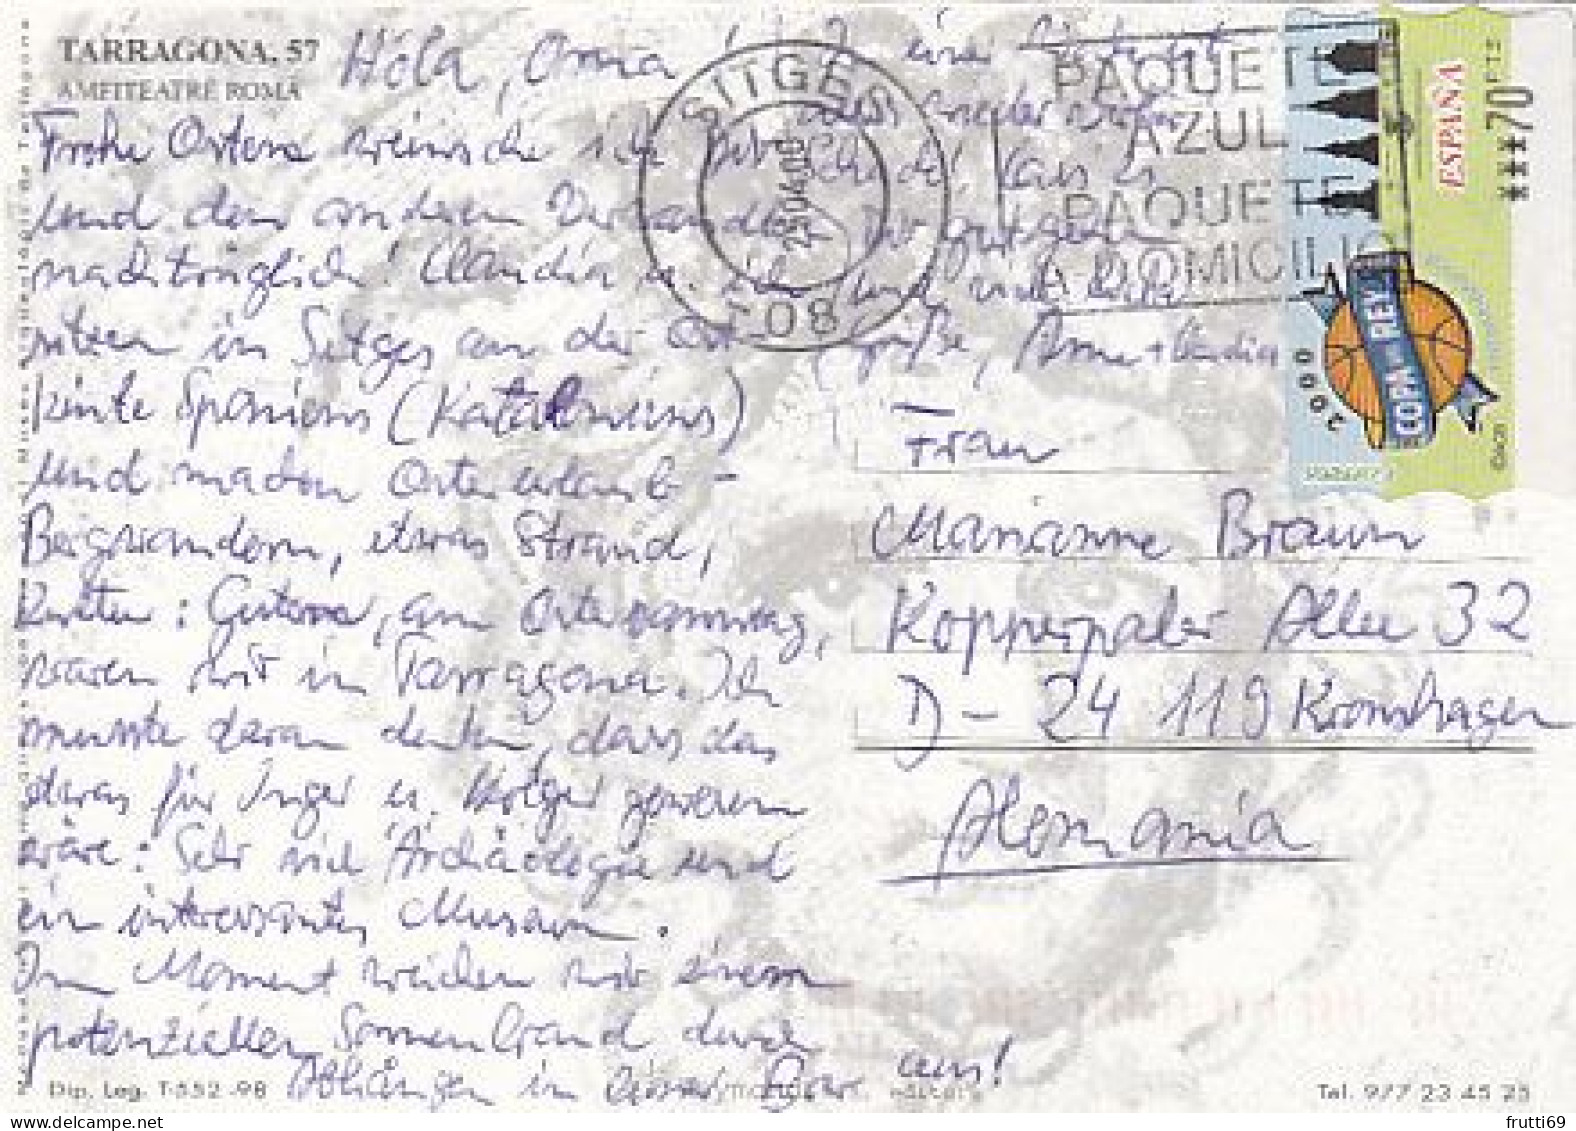 TARRAGONA. 57
AMFITEATRE ROMÀ
Hola, Oma!
Frohe Ostern wünsche ich Dir
und den anderen Verwandten
nachträglich! Claudia u. ich
sitzen in Sitges an der Ost-
küste Spaniens (Kataloniens)
und machen Osterurlaub -
Bergwandern, etwas Strand,
Gestern, am Ostersonntag,
waren wir in Tarragona. Ich
musste daran denken, dass das
etwas für Inger u. Holger gewesen
wäre: Sehr viel Archäologie und
ein interessantes Museum.
Im Moment weichen wir einem
potenziellen Sonnenbrand durch
Abhängen in einer Bar aus!
einer
Schade, dass es
Dir gut geht
und viele liebe
Grüße, Arne + Claudia
SITGES
25.04.00
T-08
PAQUETE
AZUL
PAQUETE
A DOMICILIO
ESPAÑA
***70 PTS
COPA DEL REY
2000
Frau
Marianne Braun
Kopperpahler Allee 32
D-24 119 Kronshagen
Alemania
Dip. Leg. T-552-98
Tel. 977 23 45 25
frutti69